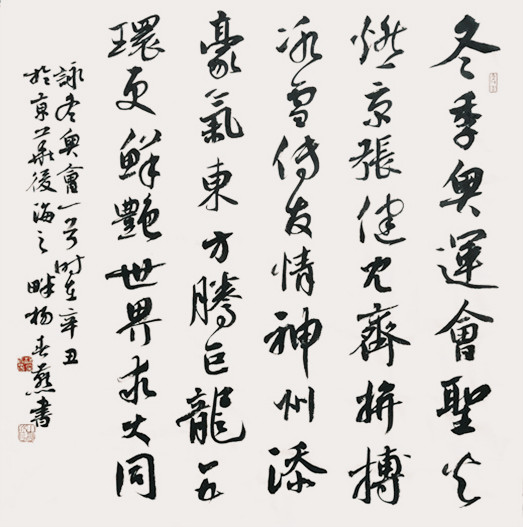 冬季奧運會聖火
燃京張健兒齊拚搏
冰雪傳友情神州添
豪氣東方騰巨龍五
環更鮮艷世界求大同
詠冬奧會一首时在辛丑
於京華後海之畔楊春燕書